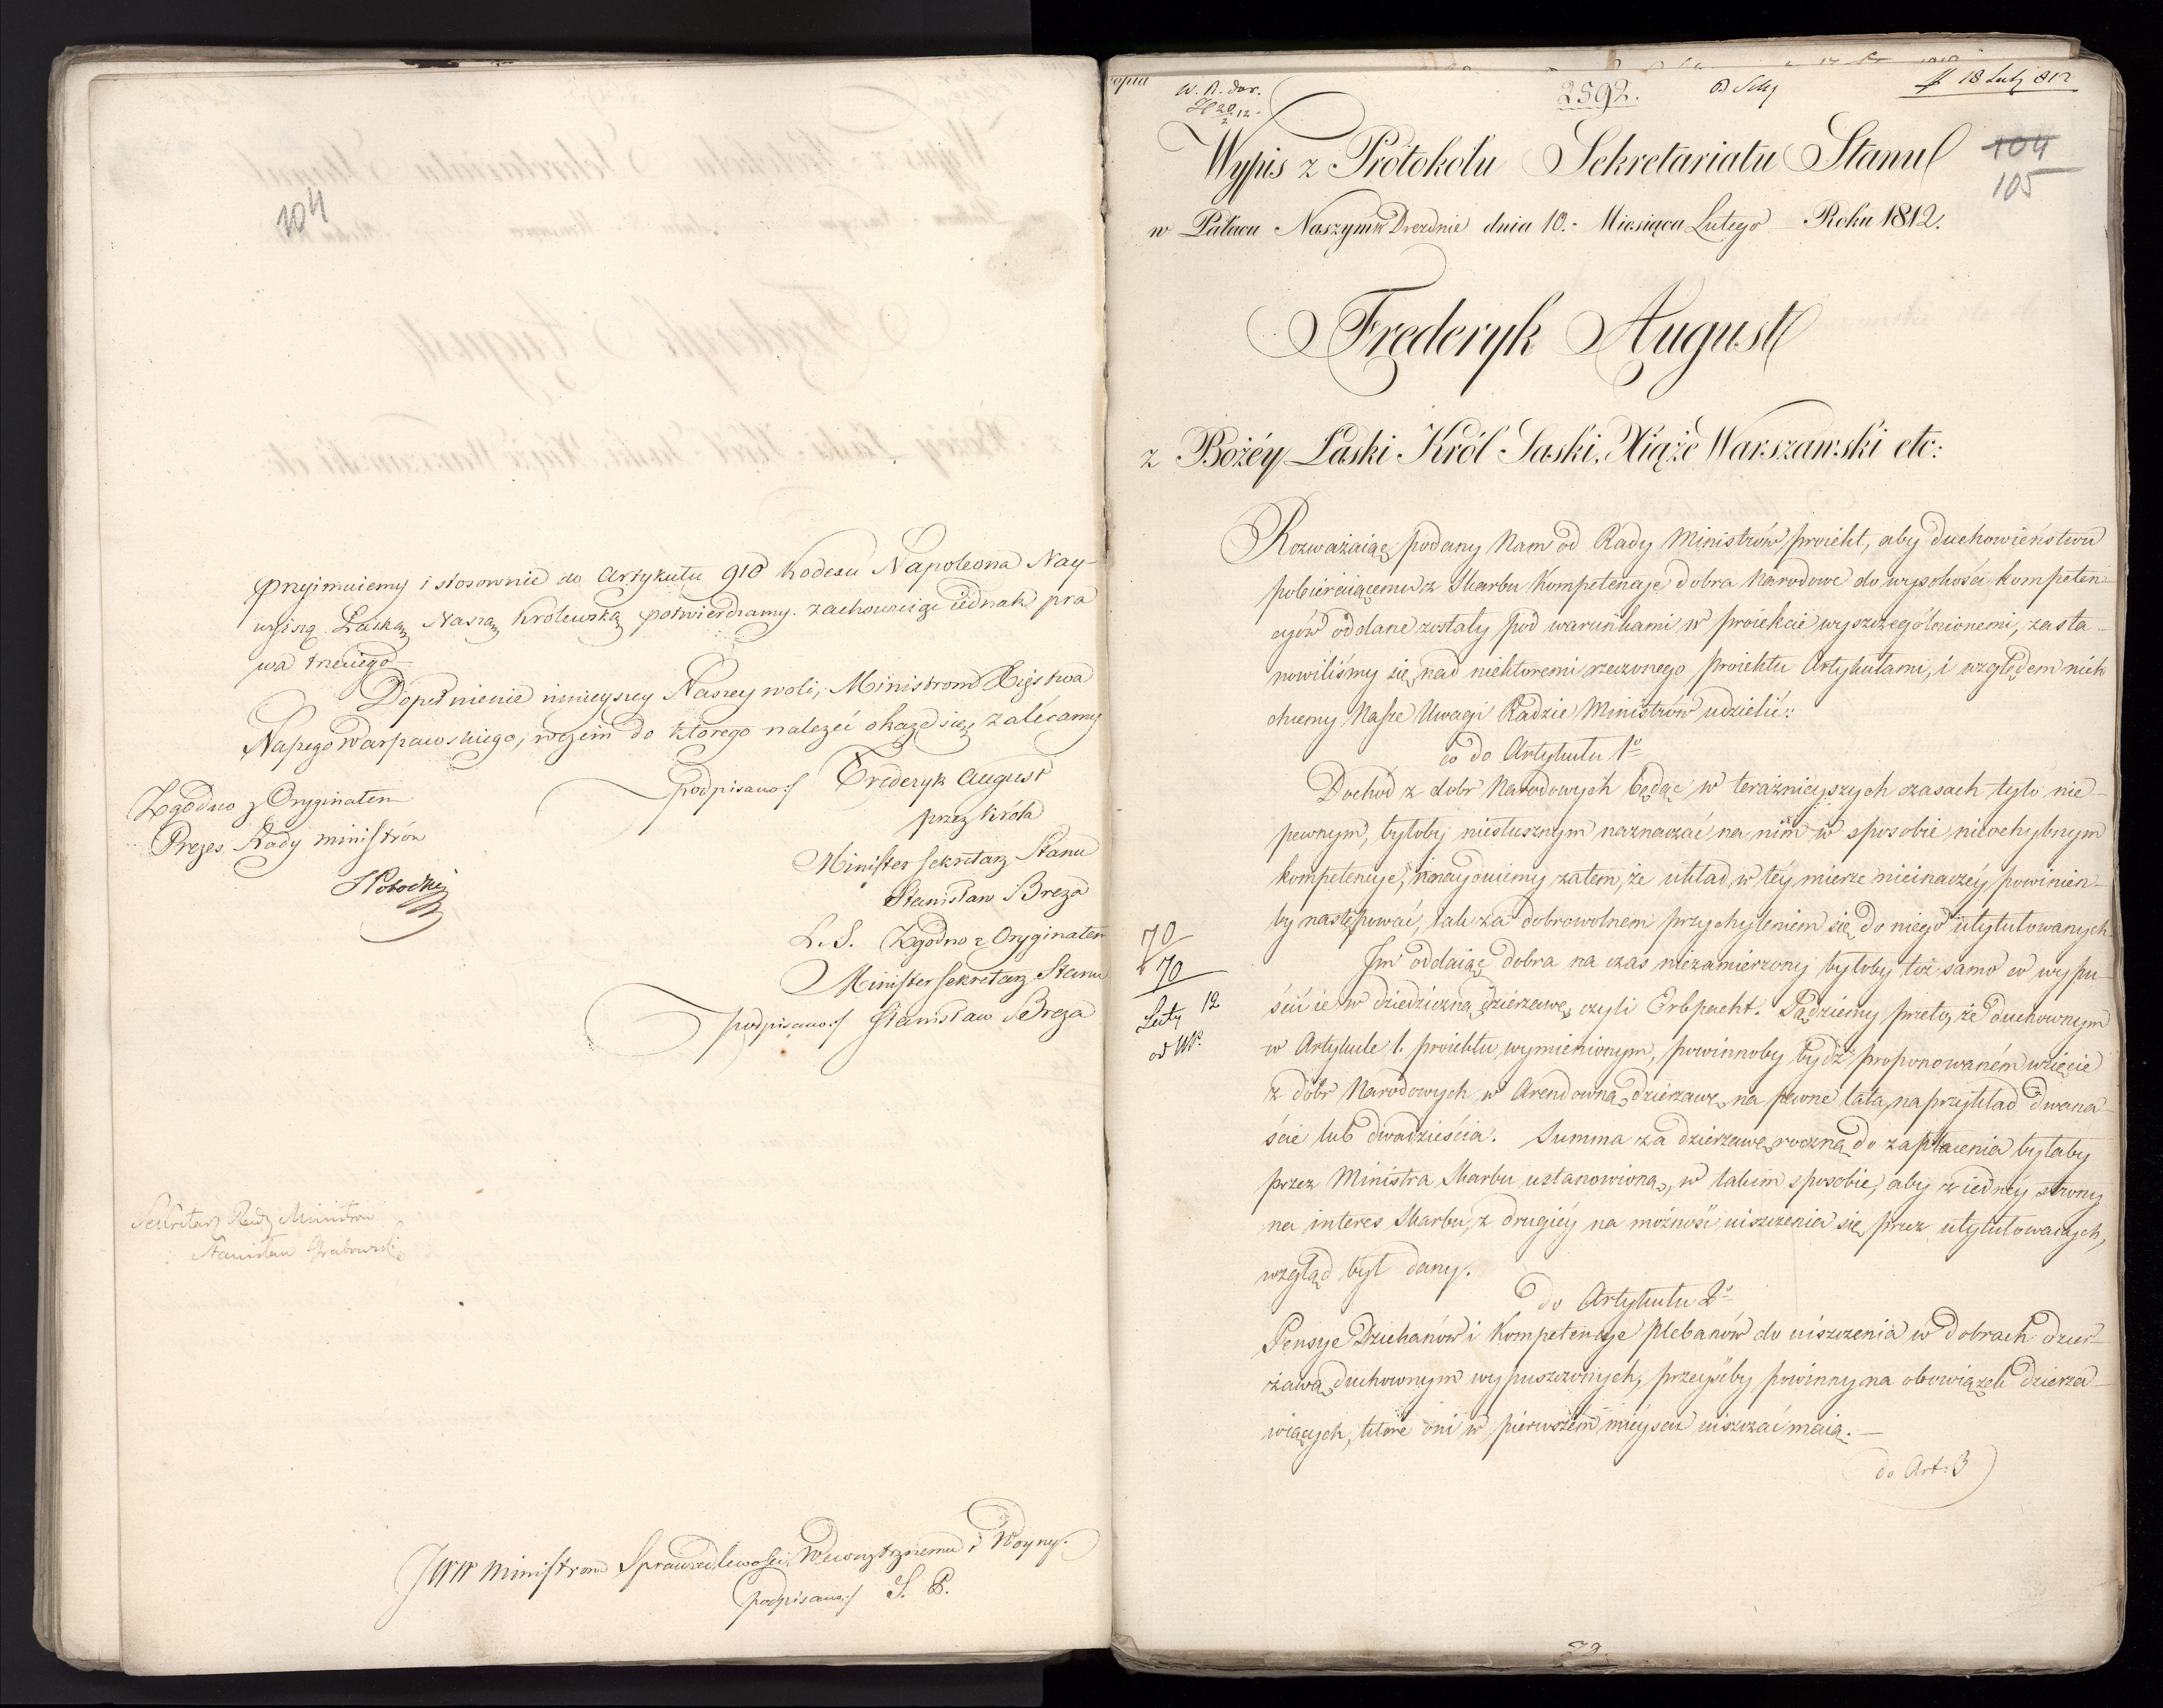 104
przyimuiemy i stosownie do Artykułu 910 Kodexu Napoleona Nay-
wyższą Łaską Naszą Królewską potwierdzamy. zachowuiąc iednak pra
wa trzeciego
Dopełnienie ninieyszey Naszey woli, Ministrom Xięstwa
Naszego Warszawskiego, wczém do którego należeć okaże się, zalécamy
podpisano:/ Frederyk August
przez Króla
Minister Sekretarz Stanu
Stanisław Breza
L. S. Zgodno z Oryginałem
Minister Sekretarz Stanu
podpisano:/ Stanisław Breza
Zgodno z Oryginałem
Prezes Rady Ministrów
Sekretarz Rady Ministrów
Stanisław Grabowski
JWW Ministrom Sprawiedliwości, Wewnętrznemu i Woyny.
podpisano:/ S. B.
2592.
18 Luty 812
104
105
Wypis z Protokołu Sekretariatu Stanu
w Pałacu Naszym w Dreznie dnia 10.- Miesiąca Lutego Roku 1812.
Frederyk August
z Bożéy Łaski Król Saski, Xiąże Warszawski etc:
Rozważaiąc podany Nam od Rady Ministrów proiekt, aby duchowieństwu
pobieraiącemu z Skarbu Kompetencye dobra Narodowe do wysokości kompeten-
cyów oddane zostały pod warunkami w proiekcie wyszczególnionemi, zasta-
nowiliśmy się nad niektoremi rzeczonego proiektu Artykułami, i względem nich
chcemy Nasze Uwagi Radzie Ministrów udzielić:
co do Artykułu 1o
Dochód z dobr Narodowych będąc w teraznieyszych czasach tyło nie-
pewnym, byłoby niesłusznym naznaczać na nim w sposobie nieochybnym
kompetencye, znayduiemy zatem, że układ w téy mierze nieinaczéy powinien-
by następować, jak za dobrowolnem przychyleniem się do niego utytułowanych.
Im oddaiąc dobra na czas niezamierzony byłoby toż samo co wypu-
ścić ie w dziedziczną dzierzawę, czyli Erbpacht. Sądziemy przeto, że duchownym
w Artykule 1. proiektu wymienionym, powinnoby bydź proponowaném wzięcie
z dobr Narodowych w Arendowną dzierzawę na pewne lata, naprzykład dwana-
ście lub dwadzieścia. Summa za dzierzawę roczną do zapłacenia byłaby
przez Ministra Skarbu ustanowioną, w takim sposobie, aby z iednéy strony
na interes Skarbu, z drugiéy na możność uiszczenia się przez utytułowanych,
wzgląd był dany.
do Artykułu 2o
Pensye Dziekanów i Kompetencye Plebanów do uiszczenia w dobrach dzier-
żawą duchownym wypuszczonych, przeyśćby powinny na obowiązek dzierza-
wiących, które oni w pierwszém mieyscu uiszczać maią.-
do Art: 3
70
70
Luty 12